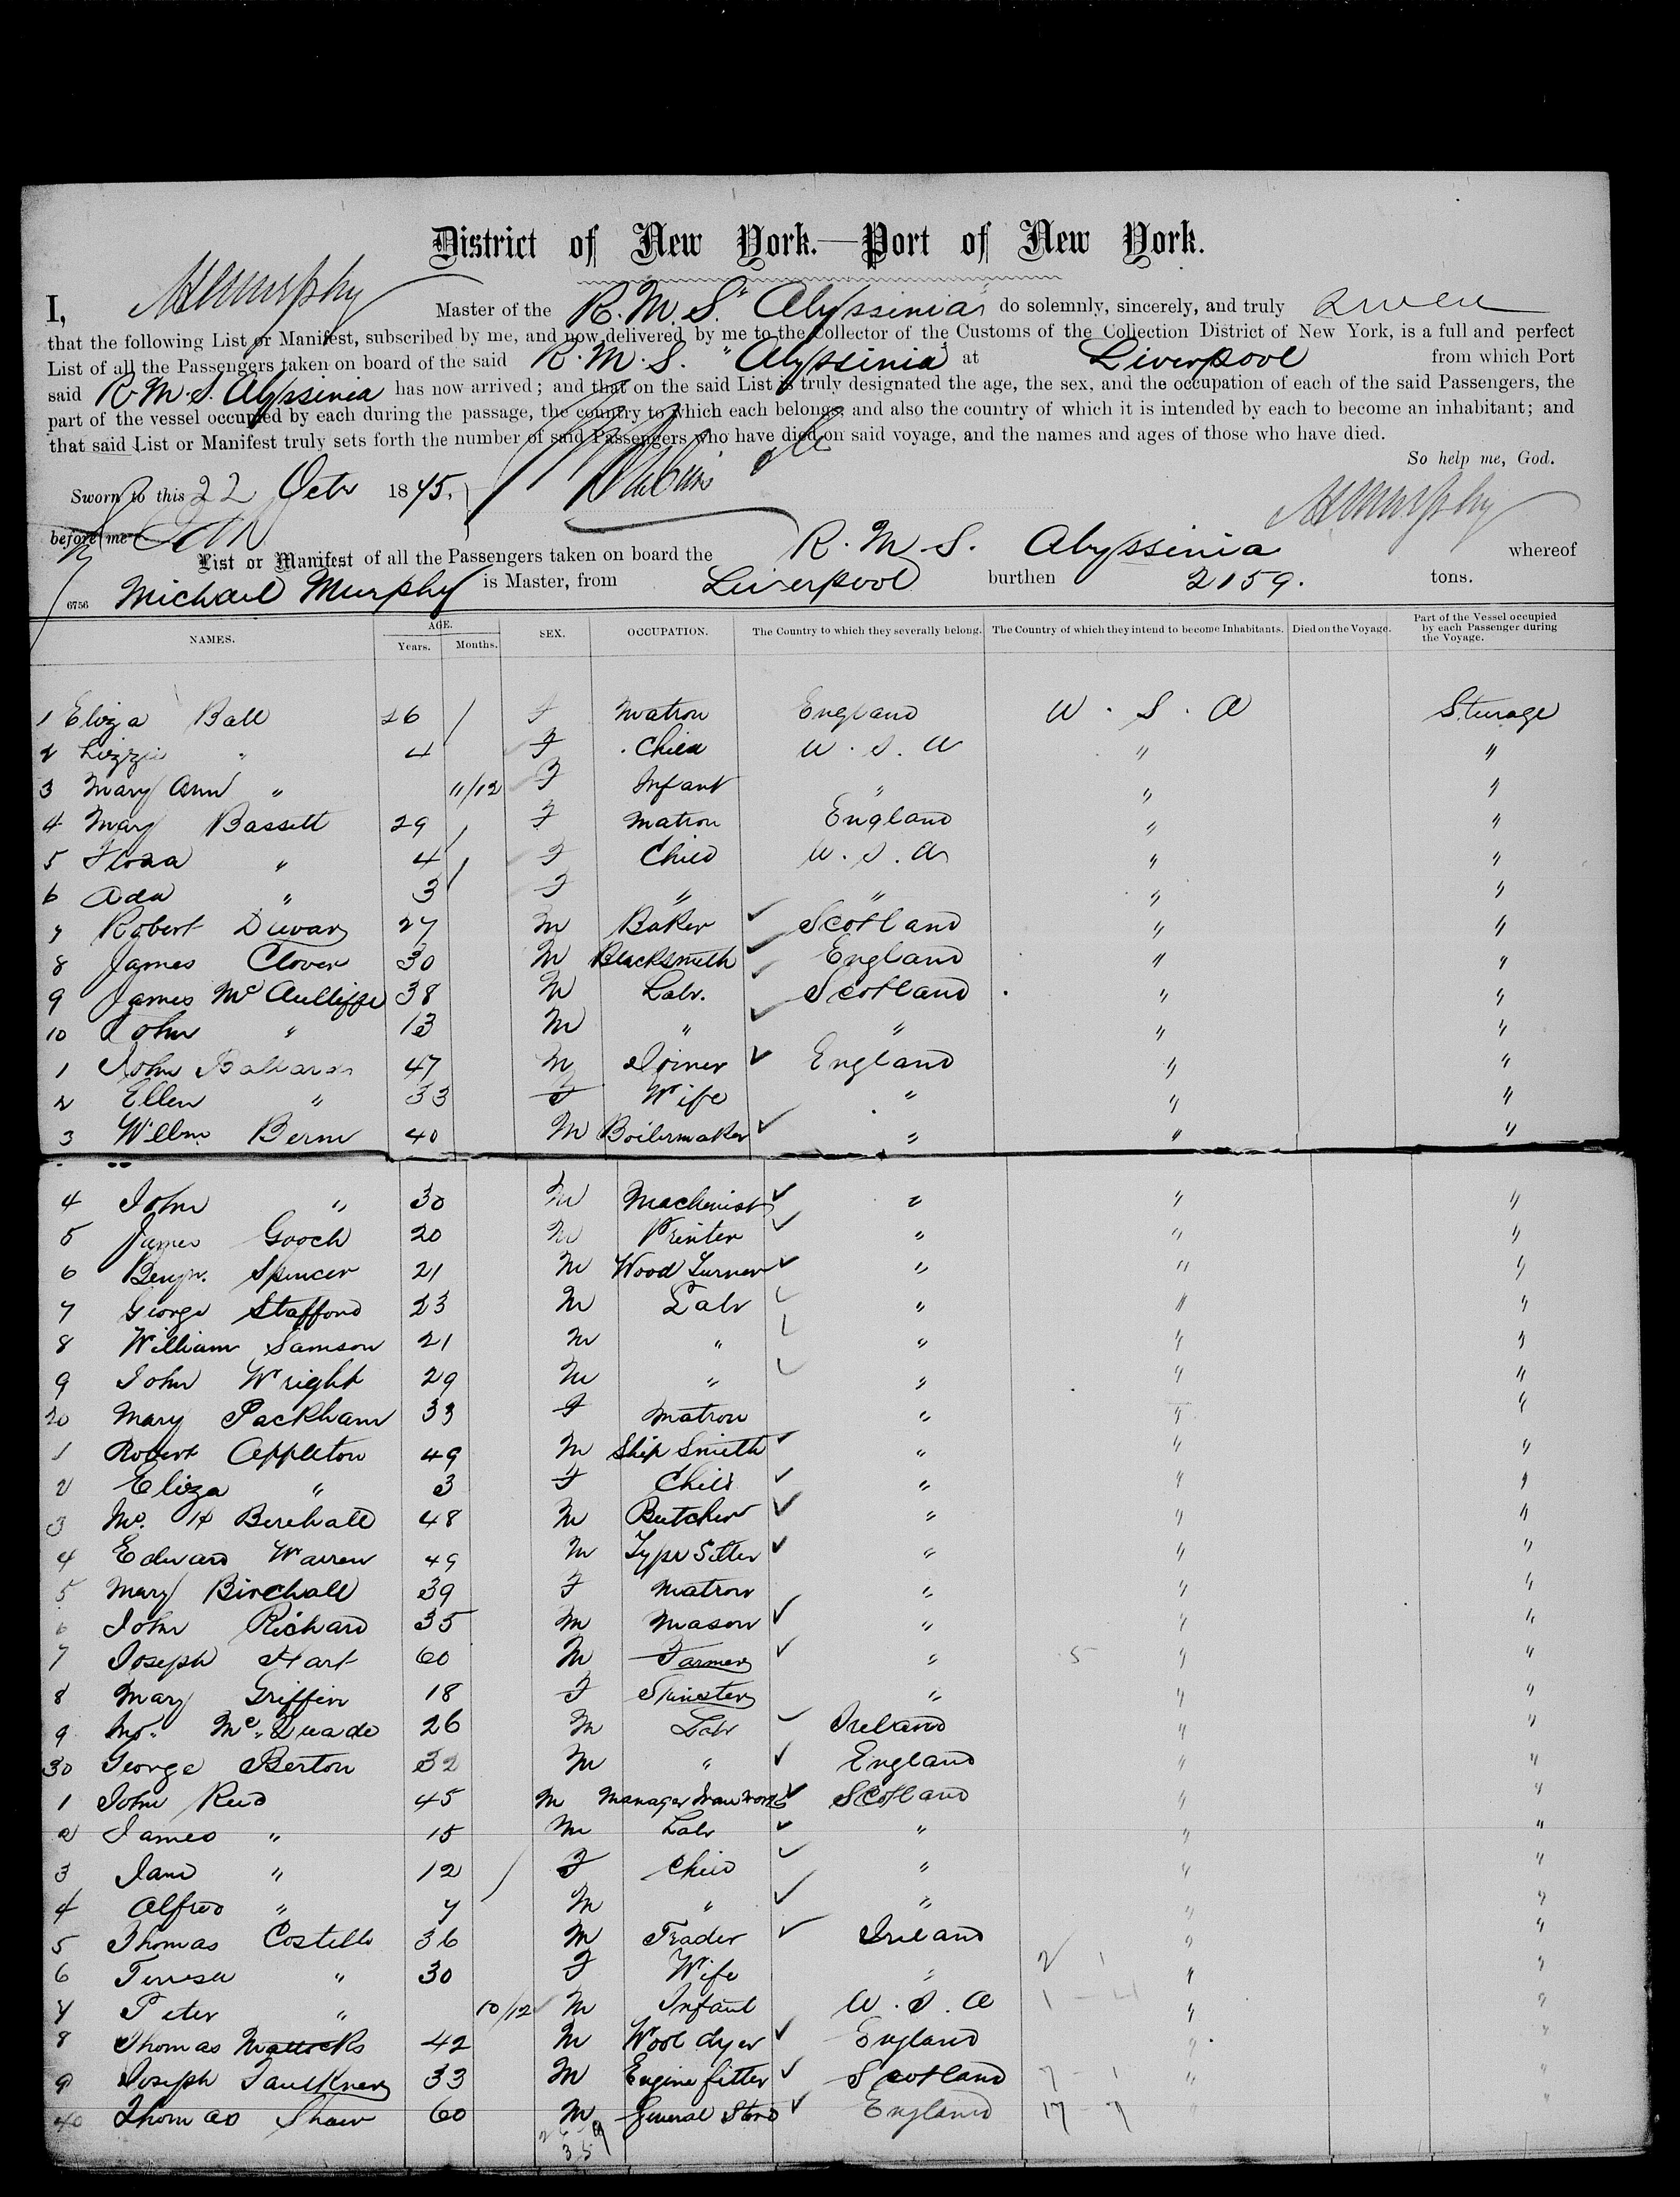 District of New York.—Port of New York.
I, M Murphy Master of the R.M.S. "Abyssinia" do solemnly, sincerely, and truly swear
that the following List or Manifest, subscribed by me, and now delivered by me to the Collector of the Customs of the Collection District of New York, is a full and perfect
List of all the Passengers taken on board of the said R.M.S. "Abyssinia" at Liverpool from which Port
said R.M.S. Abyssinia has now arrived; and that on the said List is truly designated the age, the sex, and the occupation of each of the said Passengers, the
part of the vessel occupied by each during the passage, the country to which each belongs, and also the country of which it is intended by each to become an inhabitant; and
that said List or Manifest truly sets forth the number of said Passengers who have died on said voyage, and the names and ages of those who have died.
So help me, God.
Sworn to this 22 Octr 1875.
before me M Murphy
List or Manifest of all the Passengers taken on board the R.M.S. Abyssinia whereof
6756 Michael Murphy is Master, from Liverpool burthen 2159. tons.
NAMES. AGE. Years. Months. SEX. OCCUPATION. The Country to which they severally belong. The Country of which they intend to become Inhabitants. Died on the Voyage. Part of the Vessel occupied by each Passenger during the Voyage.
1 Eliza Ball 26 F Matron England U.S.A Steerage
2 Lizzie " 4 F Child U.S.A " "
3 Mary Ann " 11/12 F Infant " " "
4 Mary Bassett 29 F Matron England " "
5 Flora " 4 F Child U.S.A " "
6 Ada " 3 F " " " "
7 Robert Dewar 27 M Baker Scotland " "
8 James Clover 30 M Blacksmith England " "
9 James McAulliffe 38 M Labr. Scotland " "
10 John " 13 M " " " "
1 John Ballard 47 M Joiner England " "
2 Ellen " 33 F Wife " " "
3 Willm Berm 40 M Boilermaker " " "
4 John " 30 M Machinist " " "
5 James Gooch 20 M Printer " " "
6 Benjn. Spencer 21 M Wood Turner " " "
7 George Stafford 23 M Labr " " "
8 William Samson 21 M " " " "
9 John Wright 29 M " " " "
20 Mary Packham 33 F Matron " " "
1 Robert Appleton 49 M Ship Smith " " "
2 Eliza " 3 F Child " " "
3 Mr. H Birchall 48 M Butcher " " "
4 Edward Warren 49 M Type Setter " " "
5 Mary Birchall 39 F Matron " " "
6 John Richard 35 M Mason " " "
7 Joseph Hart 60 M Farmer " 5 " "
8 Mary Griffin 18 F Spinster " " "
9 McQuade 26 M Labr Ireland " "
30 George Berton 32 M " England " "
1 John Reid 45 M Manager Iron Works Scotland " "
2 James " 15 M Labr " " "
3 Jane " 12 F Child " " "
4 Alfred " 7 M " " " "
5 Thomas Costello 36 M Trader Ireland " "
6 Terresa " 30 F Wife " " "
7 Peter " 10/12 M Infant U.S.A " "
8 Thomas Mattocks 42 M Wool dyer England " "
9 Joseph Faulkner 33 M Engine fitter Scotland " "
40 Thomas Shaw 60 M General Stord England " "